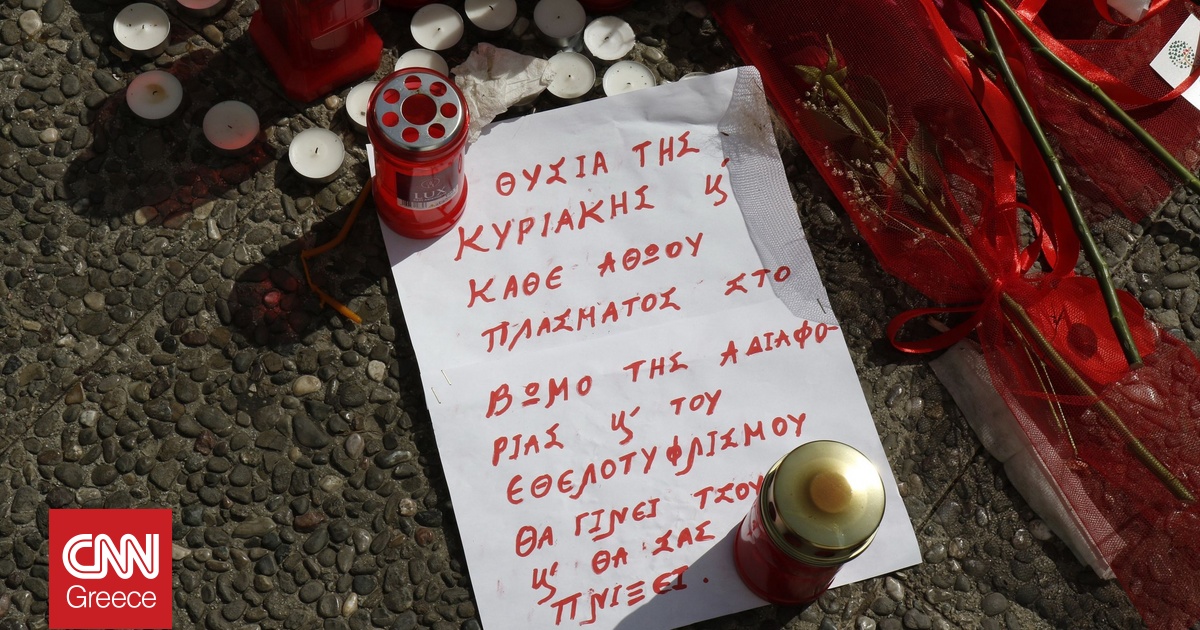 ΘΥΣΙΑ ΤΗΣ
ΚΥΡΙΑΚΗΣ ϗ
ΚΑΘΕ ΑΘΩΟΥ
ΠΛΑΣΜΑΤΟΣ ΣΤΟ
ΒΩΜΟ ΤΗΣ ΑΔΙΑΦΟ-
ΡΙΑΣ ϗ ΤΟΥ
ΕΘΕΛΟΤΥΦΛΙΣΜΟΥ
ΘΑ ΓΙΝΕΙ ΤΣΟΥ
ϗ ΘΑ ΣΑΣ
ΠΝΙΞΕΙ.
LUX
CNN
Greece